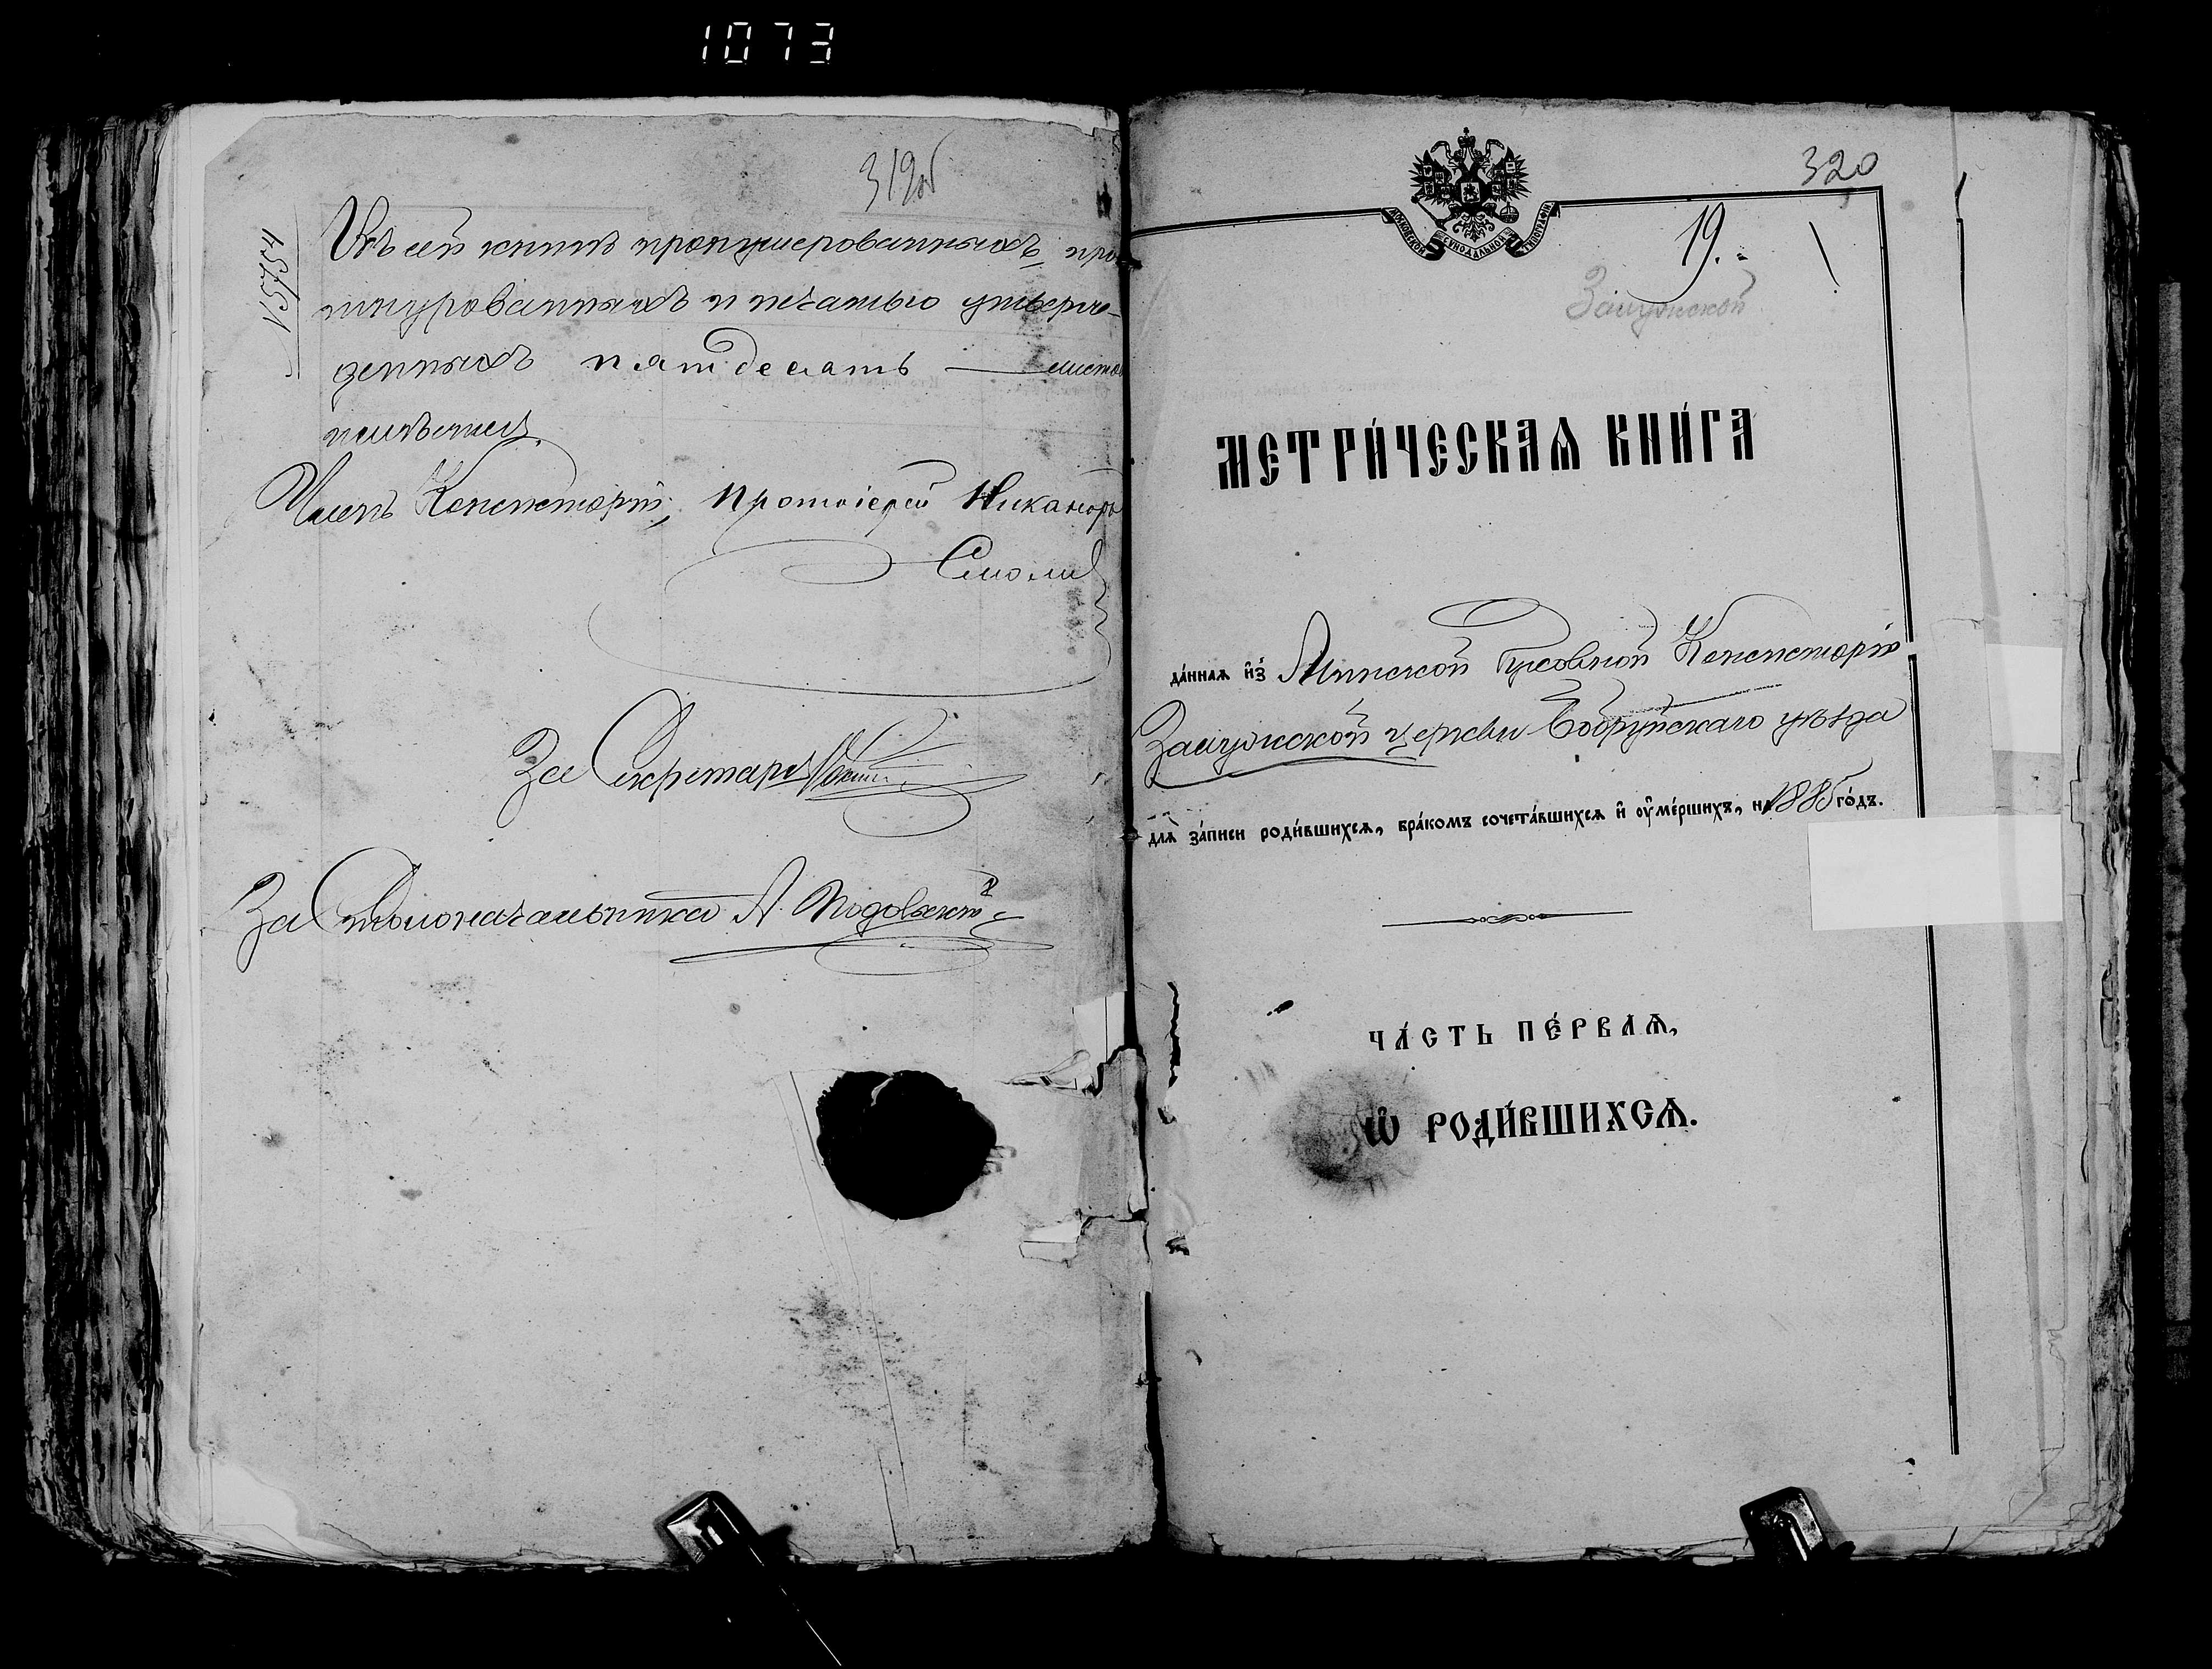 1073
319об
№ 15754
Въ сей книгѣ пронумерованныхъ, про
шнурованныхъ и печатью утверж-
денныхъ пятдесятъ — листов
имѣется.
Членъ Консисторіи, Протоіерей Никаноръ
Смолич
За Секретаря
За Столоначальника А.
320
19.
МОСКОВСКОЙ СУНОДАЛЬНОЙ ТИПОГРАФІИ
Залужской
МЕТРИ́ЧЕСКАѦ КНИ́ГА
да́ннаѧ и҆з̾ Минской Духовной Консисторіи
Залужской церкви Бобруйскаго уѣзда
длѧ̀ за́писи роди́вшихсѧ, бра́комъ сочета́вшихсѧ и҆ ᲂу҆ме́ршихъ, на 1885 го́дъ.
ЧА́СТЬ ПЕ́РВАѦ,
Ѡ҆ РОДИ́ВШИХСѦ.